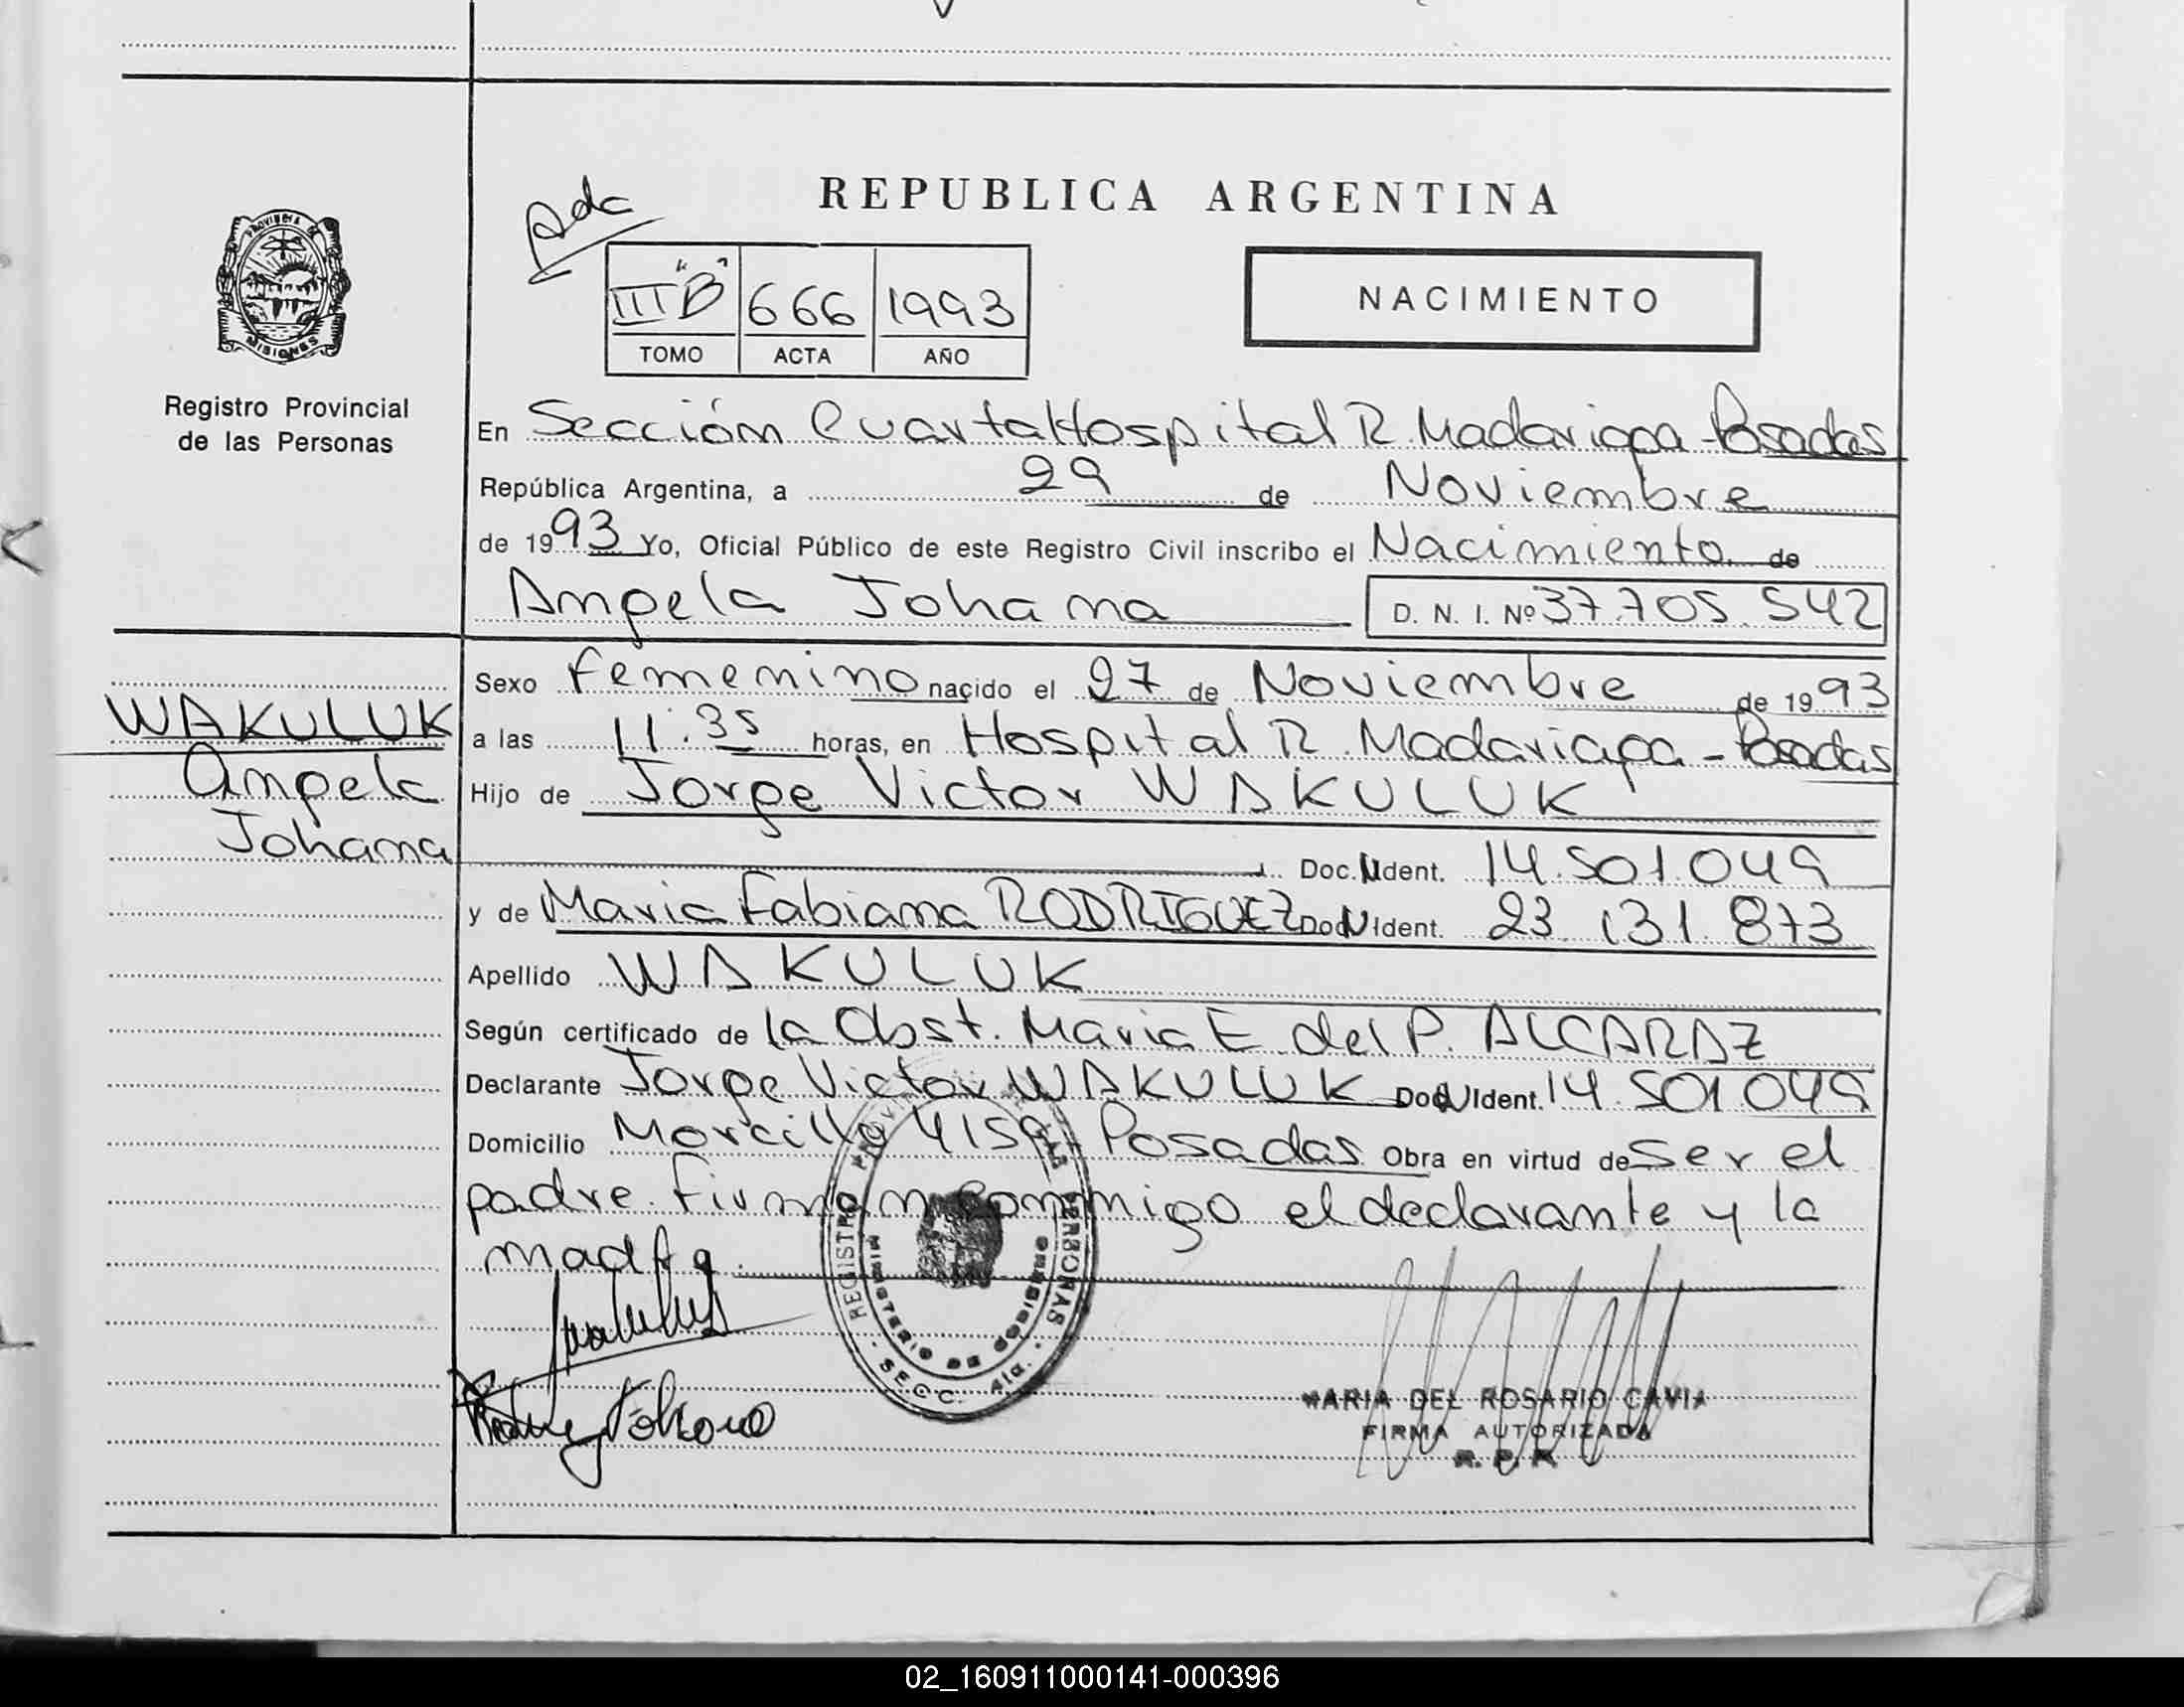 REPUBLICA ARGENTINA
Adc
III "B" 666 1993
TOMO ACTA AÑO
NACIMIENTO
PROVINCIA DE MISIONES
Registro Provincial
de las Personas
En Sección Cuarta Hospital R. Madariaga - Posadas
República Argentina, a 29 de Noviembre
de 1993 Yo, Oficial Público de este Registro Civil inscribo el Nacimiento de
Angela Johana D. N. I. Nº 37.705.542
Sexo femenino nacido el 27 de Noviembre de 1993
WAKULUK
a las 11:35 horas, en Hospital R. Madariaga - Posadas
Angela
Hijo de Jorge Victor WAKULUK
Johana
Doc. N Ident. 14.501.049
y de Maria Fabiana RODRIGUEZ Doc N Ident. 23.131.873
Apellido WAKULUK
Según certificado de la Obst. Maria E. del P. ALCARAZ
Declarante Jorge Victor WAKULUK Doc N Ident. 14.501.049
Domicilio Morcillo 4159 Posadas Obra en virtud de ser el
padre. Firman conmigo el declarante y la
madre.
REGISTRO PROVINCIAL DE LAS PERSONAS
MINISTERIO DE GOBIERNO
SECC. 4ta.
MARIA DEL ROSARIO CAVIA
FIRMA AUTORIZADA
R. P. P.
02_160911000141-000396